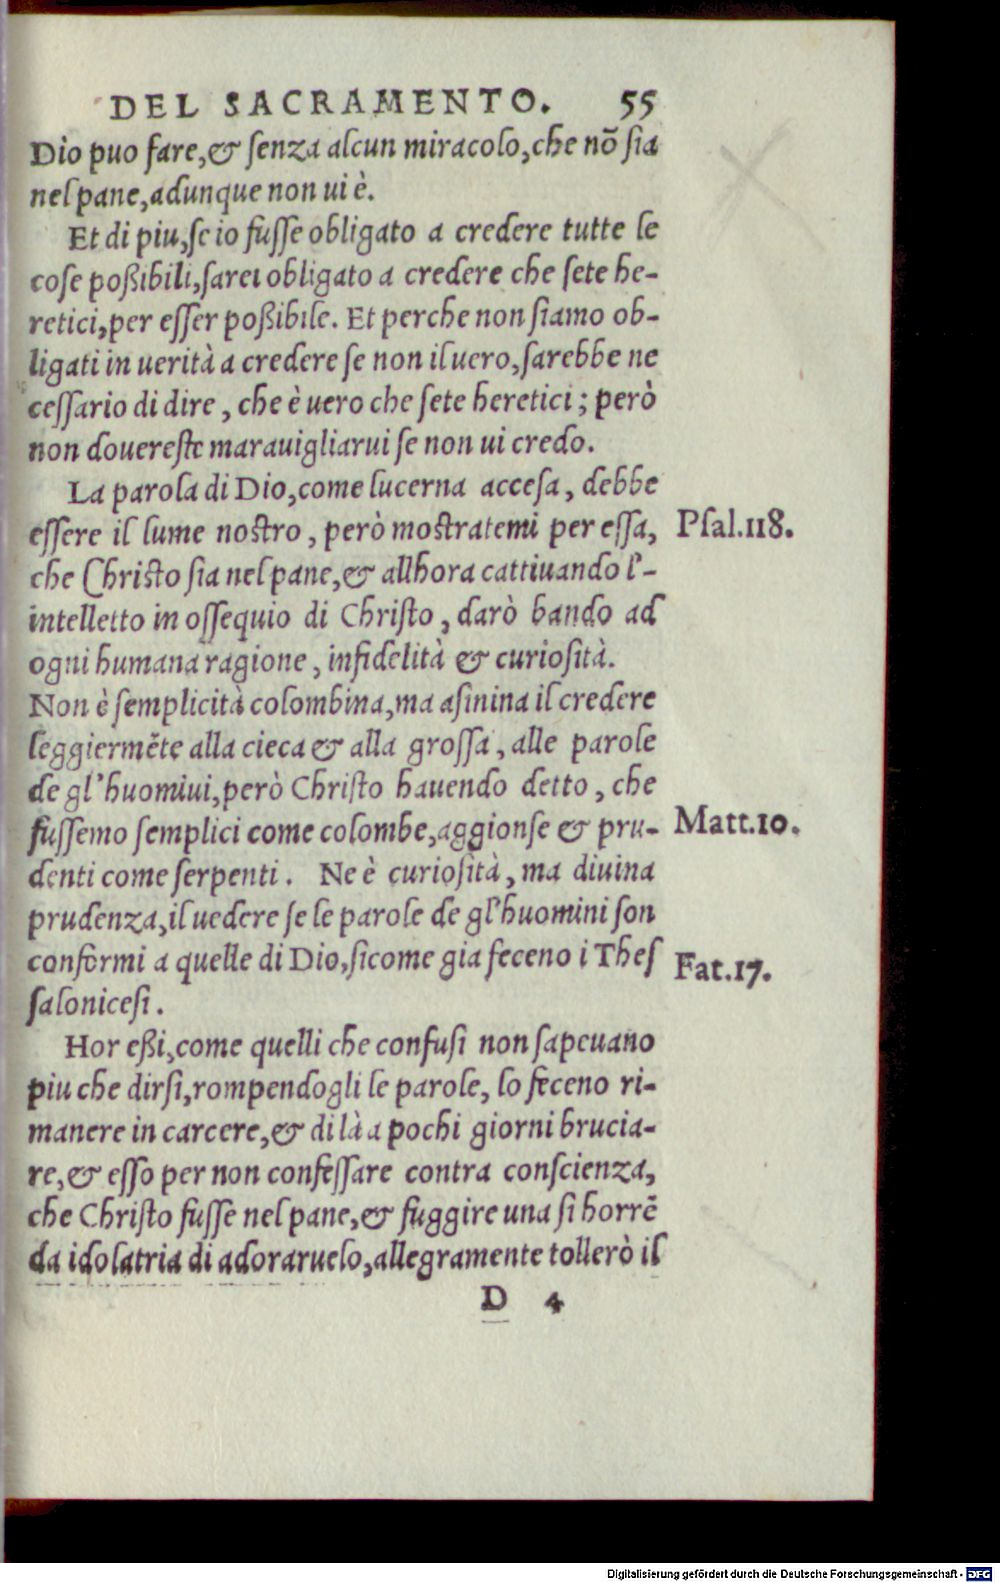 DEL SACRAMENTO. 55
Dio puo fare,& ſenza alcun miracolo,che nõ ſia
nel pane,adunque non ui è.
Et di piu,ſe io fuſſe obligato a credere tutte le
coſe poßibili,ſarei obligato a credere che ſete he-
retici,per eſſer poßibile. Et perche non ſiamo ob-
ligati in uerità a credere ſe non il uero,ſarebbe ne
ceſſario di dire, che è uero che ſete heretici; però
non douereſte marauigliarui ſe non ui credo.
La parola di Dio,come lucerna acceſa, debbe
eſſere il lume noſtro, però moſtratemi per eſſa, Pſal.118.
che Chriſto ſia nel pane,& allhora cattiuando l'-
intelletto in oſſequio di Chriſto, darò bando ad
ogni humana ragione, infidelità & curioſità.
Non è ſemplicità colombina,ma aſinina il credere
leggiermẽte alla cieca & alla groſſa, alle parole
de gl'huomiui,però Chriſto hauendo detto, che
fuſſemo ſemplici come colombe,aggionſe & pru- Matt.10.
denti come ſerpenti. Ne è curioſità, ma diuina
prudenza,il uedere ſe le parole de gl'huomini ſon
conformi a quelle di Dio,ſicome gia feceno i Theſ Fat.17.
ſaloniceſi.
Hor eßi,come quelli che confuſi non ſapeuano
piu che dirſi,rompendogli le parole, lo feceno ri-
manere in carcere,& di là a pochi giorni brucia-
re,& eſſo per non confeſſare contra conſcienza,
che Chriſto fuſſe nel pane,& fuggire una ſi horrẽ
da idolatria di adoraruelo,allegramente tollerò il
D 4
Digitalisierung gefördert durch die Deutsche Forschungsgemeinschaft - DFG